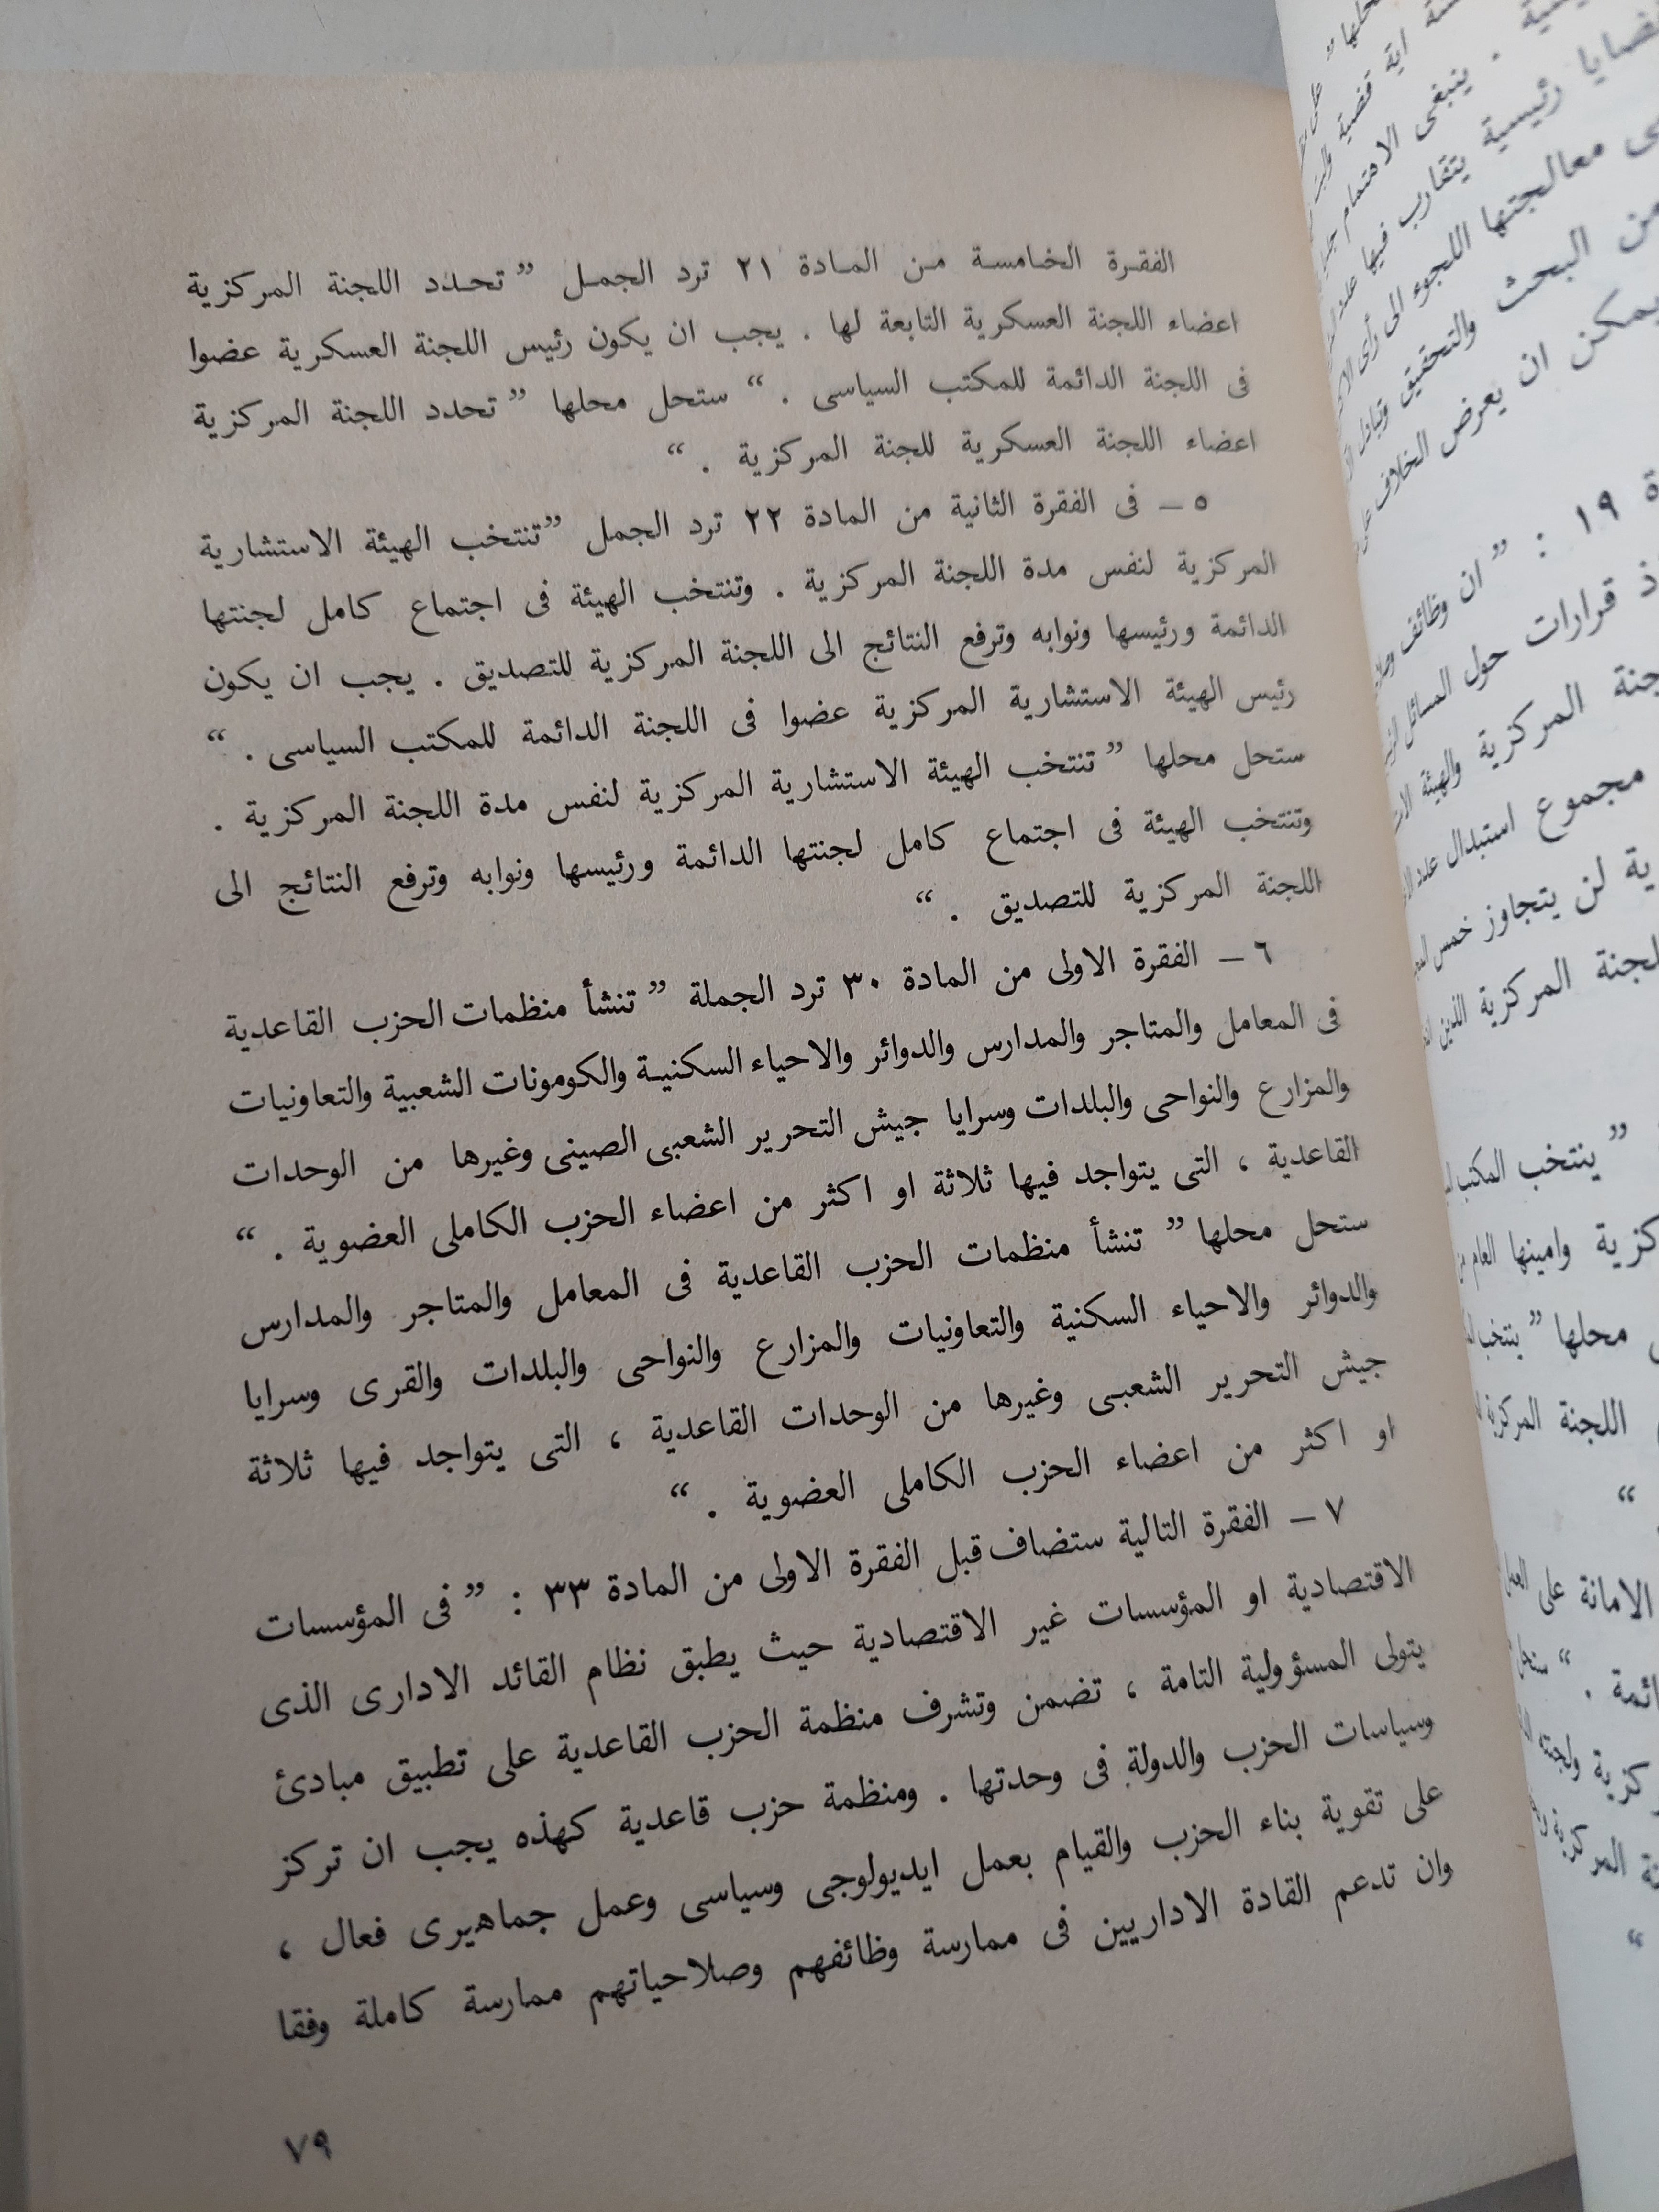 الفقرة الخامسة من المادة ٢١ ترد الجمل ” تحدد اللجنة المركزية
اعضاء اللجنة العسكرية التابعة لها . يجب ان يكون رئيس اللجنة العسكرية عضوا
فى اللجنة الدائمة للمكتب السياسى . “ ستحل محلها ” تحدد اللجنة المركزية
اعضاء اللجنة العسكرية للجنة المركزية . “
٥ – فى الفقرة الثانية من المادة ٢٢ ترد الجمل ” تنتخب الهيئة الاستشارية
المركزية لنفس مدة اللجنة المركزية . وتنتخب الهيئة فى اجتماع كامل لجنتها
الدائمة ورئيسها ونوابه وترفع النتائج الى اللجنة المركزية للتصديق . يجب ان يكون
رئيس الهيئة الاستشارية المركزية عضوا فى اللجنة الدائمة للمكتب السياسى . “
ستحل محلها ” تنتخب الهيئة الاستشارية المركزية لنفس مدة اللجنة المركزية .
وتنتخب الهيئة فى اجتماع كامل لجنتها الدائمة ورئيسها ونوابه وترفع النتائج الى
اللجنة المركزية للتصديق . “
٦ – الفقرة الاولى من المادة ٣٠ ترد الجملة ” تنشأ منظمات الحزب القاعدية
فى المعامل والمتاجر والمدارس والدوائر والاحياء السكنية والكومونات الشعبية والتعاونيات
والمزارع والنواحى والبلدات وسرايا جيش التحرير الشعبى الصينى وغيرها من الوحدات
القاعدية ، التى يتواجد فيها ثلاثة او اكثر من اعضاء الحزب الكاملى العضوية . “
ستحل محلها ” تنشأ منظمات الحزب القاعدية فى المعامل والمتاجر والمدارس
والدوائر والاحياء السكنية والتعاونيات والمزارع والنواحى والبلدات والقرى وسرايا
جيش التحرير الشعبى وغيرها من الوحدات القاعدية ، التى يتواجد فيها ثلاثة
او اكثر من اعضاء الحزب الكاملى العضوية . “
٧ – الفقرة التالية ستضاف قبل الفقرة الاولى من المادة ٣٣ : ” فى المؤسسات
الاقتصادية او المؤسسات غير الاقتصادية حيث يطبق نظام القائد الادارى الذى
يتولى المسؤولية التامة ، تضمن وتشرف منظمة الحزب القاعدية على تطبيق مبادئ
وسياسات الحزب والدولة فى وحدتها . ومنظمة حزب قاعدية كهذه يجب ان تركز
على تقوية بناء الحزب والقيام بعمل ايديولوجى وسياسى وعمل جماهيرى فعال ،
وان تدعم القادة الاداريين فى ممارسة وظائفهم وصلاحياتهم ممارسة كاملة وفقا
٧٩
اية قضية
. ينبغى الاهتمام
رئيسية يتقارب فيها
معالجتها اللجوء الى رأى
من البحث والتحقيق وتبادل
يمكن ان يعرض الخلاف
١٩ : ” ان وظائف
قرارات حول المسائل
المركزية والهيئة
مجموع استبدال عدد
لن يتجاوز خمس
المركزية الذين
” ينتخب المكتب
وامينها العام من
محلها ” ينتخب
اللجنة المركزية
“
الامانة على
. “
ولجنته
المركزية
“